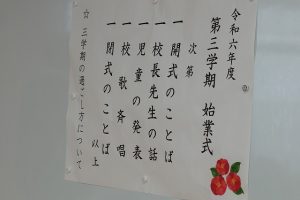 令和六年度
第三学期 始業式
次第
一 開式のことば
一 校長先生の話
一 児童の発表
一 校歌斉唱
一 閉式のことば
以上
☆ 三学期の過ごし方について